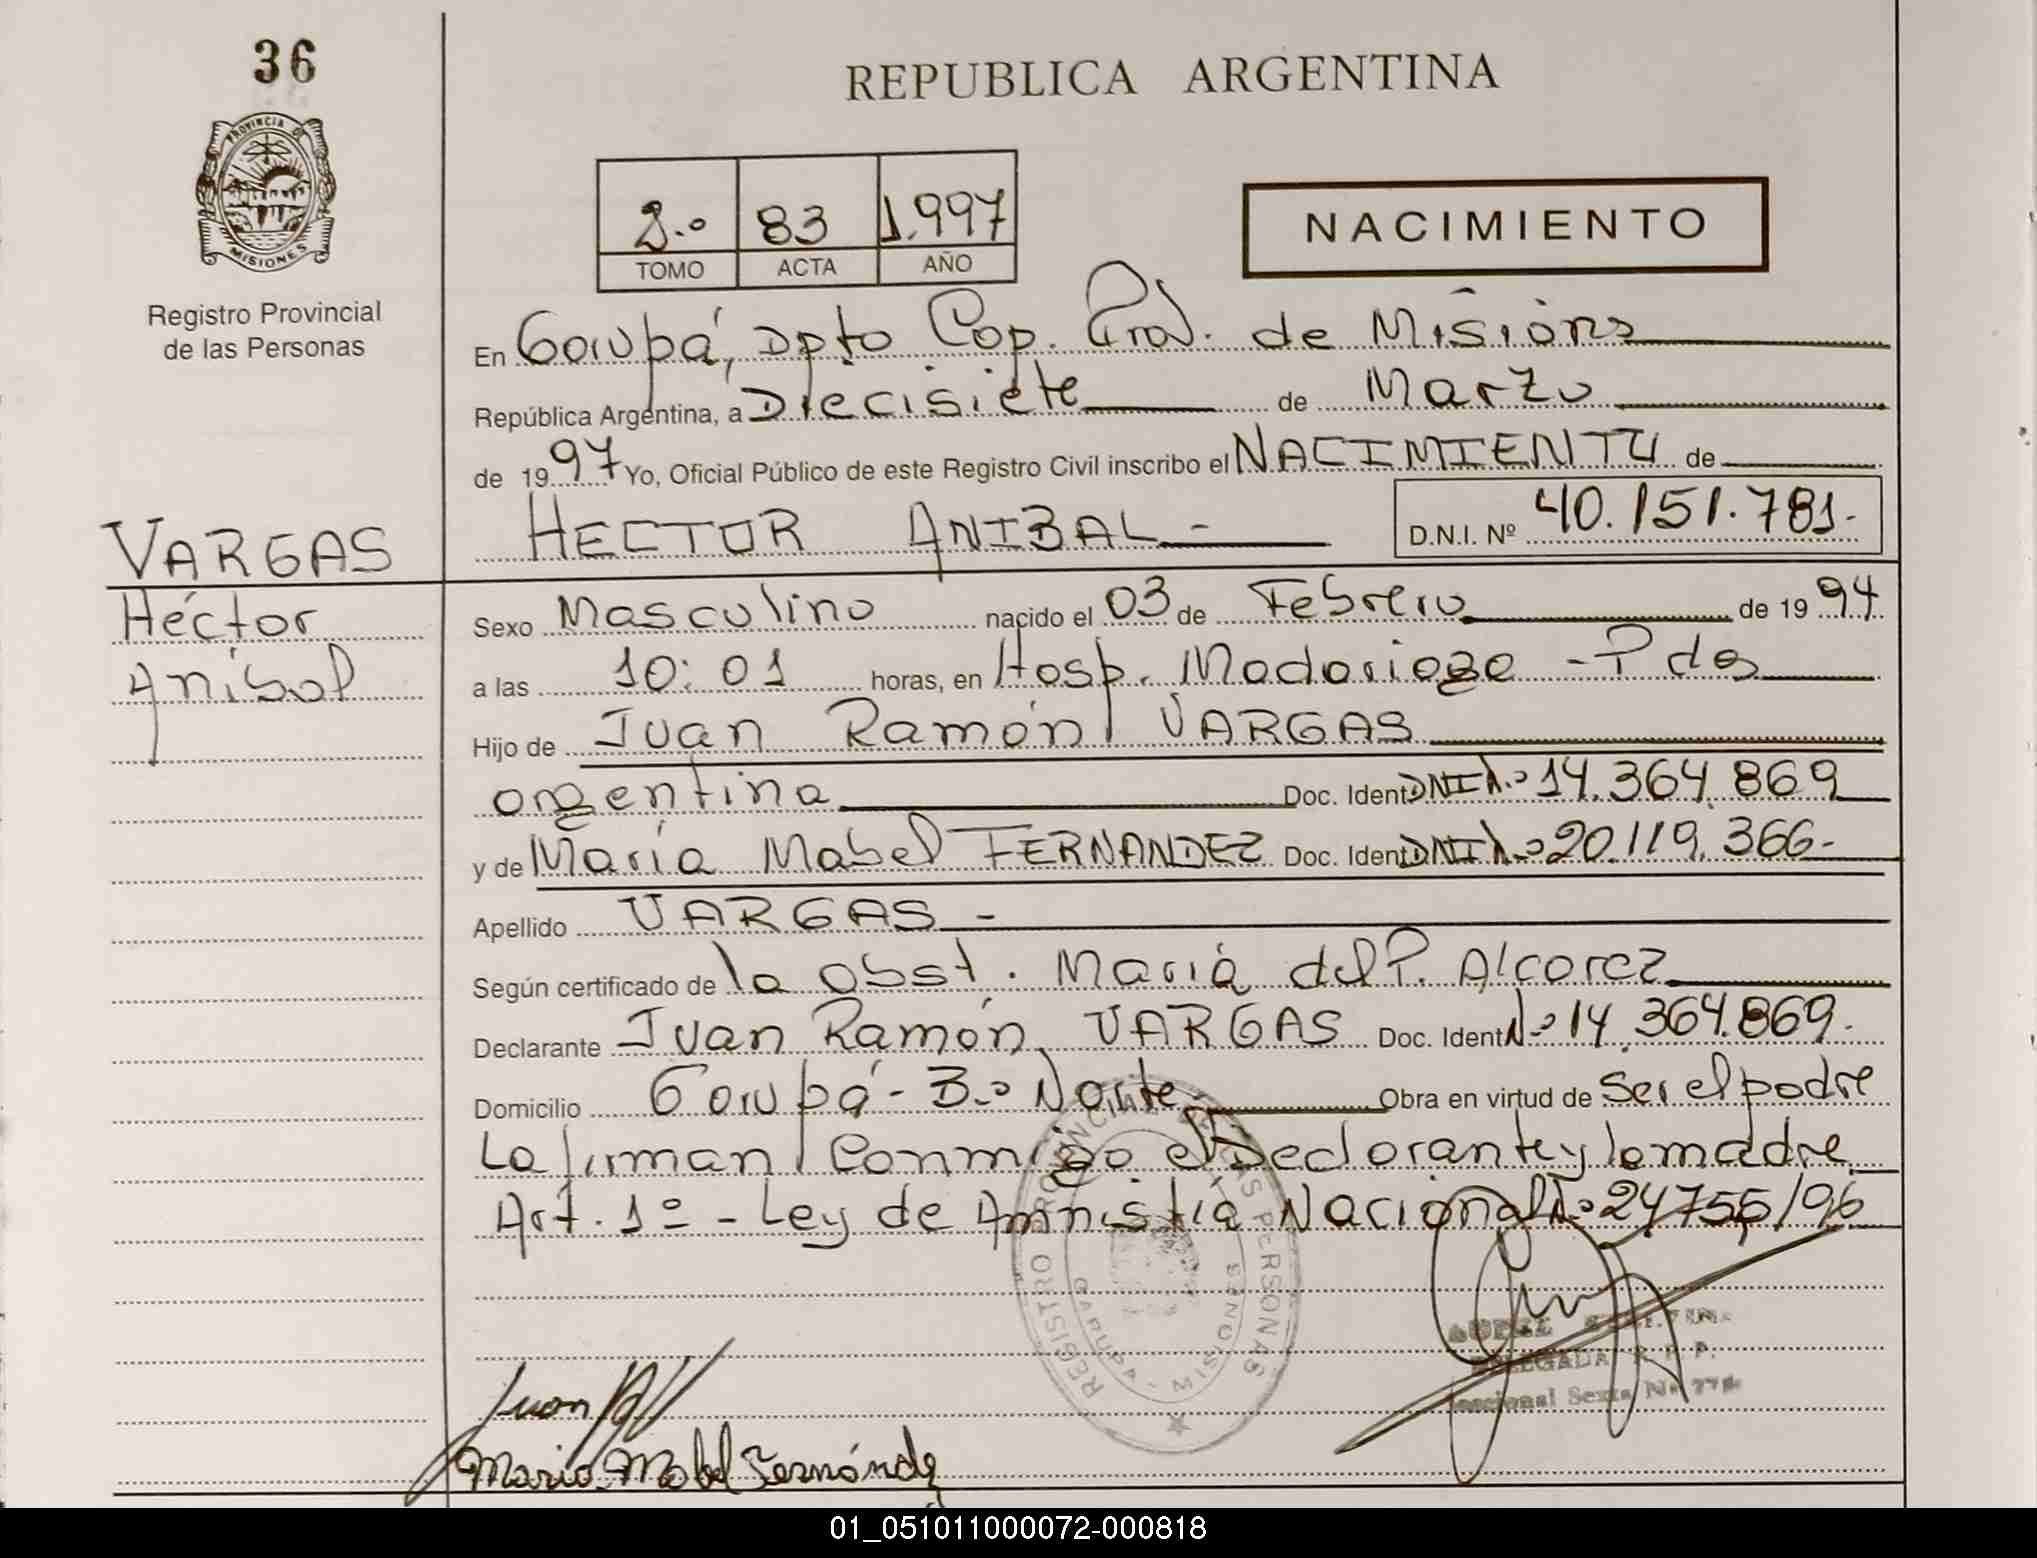 36
REPUBLICA ARGENTINA
PROVINCIA DE
MISIONES
Registro Provincial
de las Personas
2.º 83 1.997
TOMO ACTA AÑO
NACIMIENTO
En Garupá, Dpto Cap. Prov. de Misiones
República Argentina, a Diecisiete de Marzo
de 1997 Yo, Oficial Público de este Registro Civil inscribo el NACIMIENTO de
HECTOR ANIBAL - D.N.I. Nº 40.151.781.-
VARGAS
Héctor
Anibal
Sexo Masculino nacido el 03 de Febrero de 1994
a las 10:01 horas, en Hosp. Madariaga - Pdas
Hijo de Juan Ramón VARGAS
argentina Doc. Ident DNI Nº 14.364.869
y de María Mabel FERNANDEZ Doc. Ident DNI Nº 20.119.366-
Apellido VARGAS -
Según certificado de la Obst. María del P. Alcorez
Declarante Juan Ramón VARGAS Doc. Ident Nº 14.364.869.
Domicilio Garupá - Bº Norte Obra en virtud de Ser el padre
La firman conmigo el Declarante y la madre
Art. 1º - Ley de Amnistía Nacional Nº 24755/96
REGISTRO PROVINCIAL DE LAS PERSONAS
GARUPA - MISIONES
DELEGADA R. P. P.
Seccional Sexta Nº
Juan RV
María Mabel Fernández
01_051011000072-000818